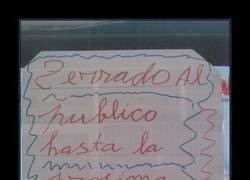 Zerrado Al
publico
hasta la